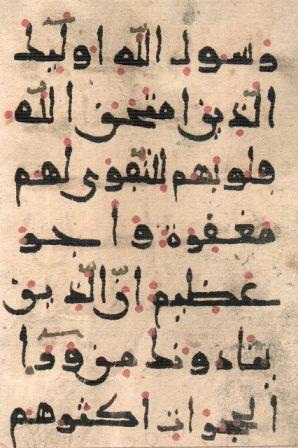 رسول اللّه اوليك
الّذين امتحن اللّه
قلوبهم للتّقوى لهم
مغفرة واجر
عظيم انّ الّذين
ينادونك من ورا
الحجرات اكثرهم